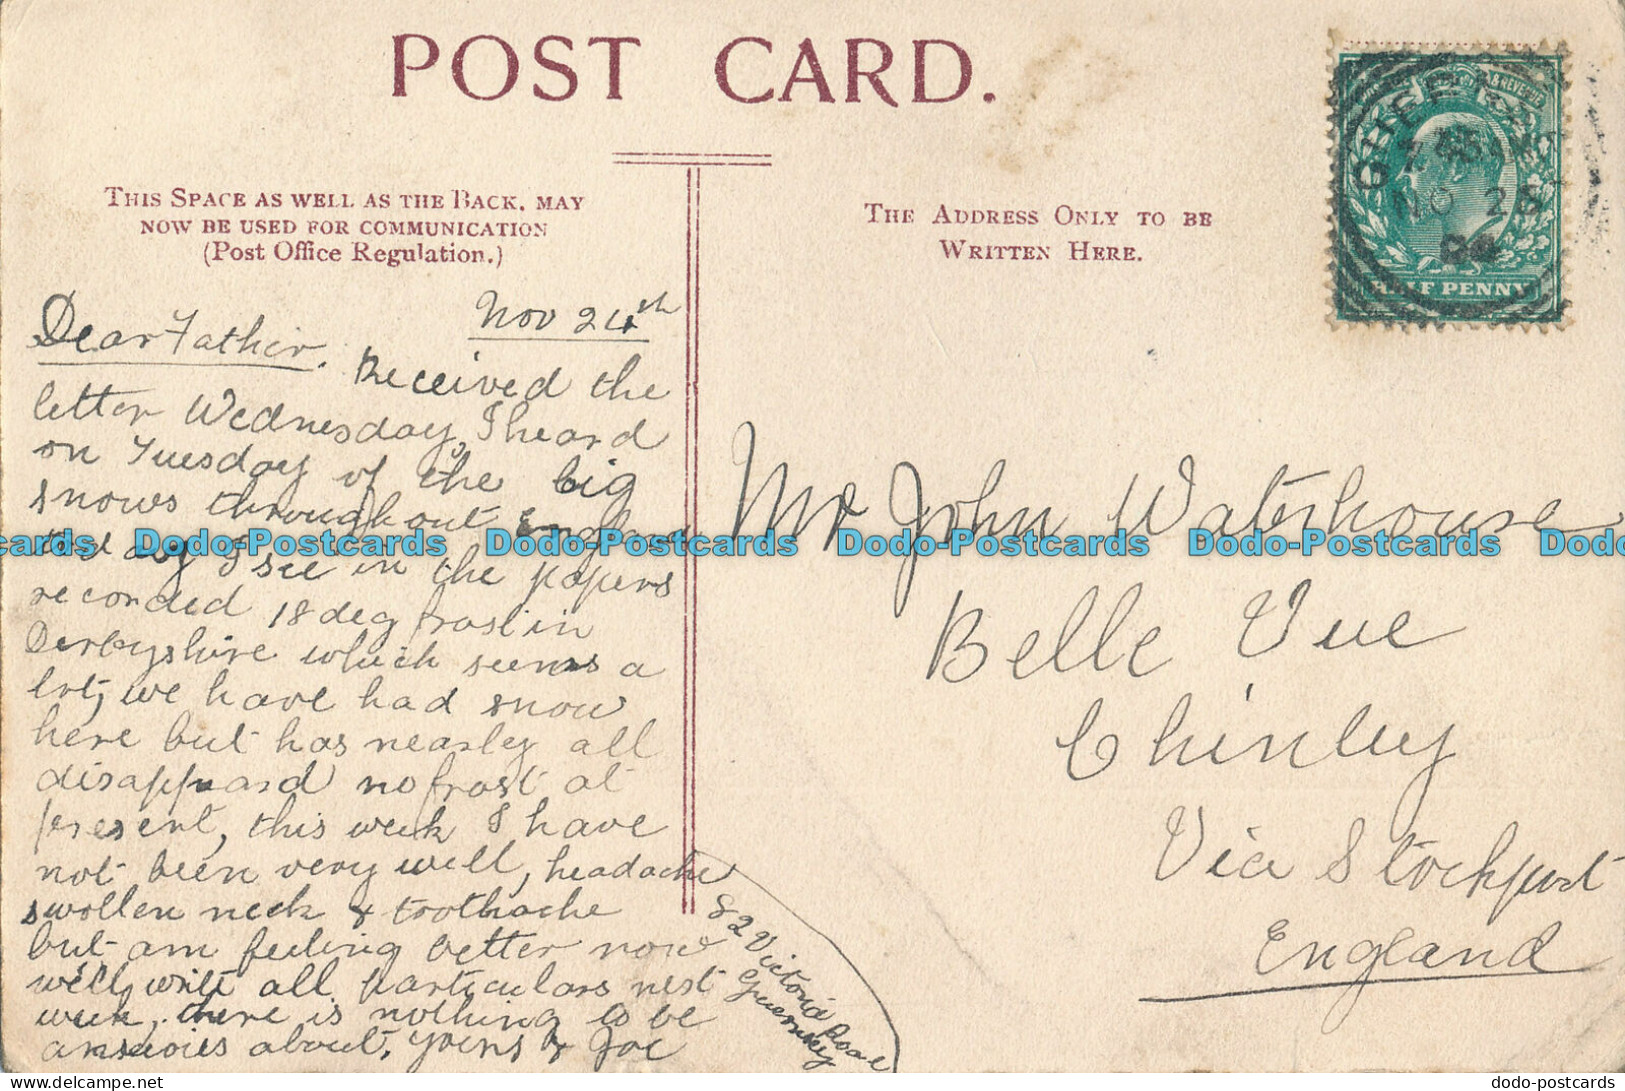 POST CARD.
THIS SPACE AS WELL AS THE BACK, MAY
NOW BE USED FOR COMMUNICATION
(Post Office Regulation.)
THE ADDRESS ONLY TO BE
WRITTEN HERE.
& REVENUE
NO 25
HALF PENNY
Nov 24th
Dear Father.
Received the
letter Wednesday, I heard
on Tuesday of the big
snows throughout England
I see in the papers
recorded 18 deg frost in
Derbyshire which seems a
lot, we have had snow
here but has nearly all
disappeard no frost at
present, this week I have
not been very well, headache
swollen neck & toothache
but am feeling better now
will write all particulars next
week, there is nothing to be
anxious about. Yours & Joe
82 Victoria Road
Guernsey
Mr John Waterhouse
Belle Vue
Chinley
Via Stockport
England
cards Dodo-Postcards Dodo-Postcards Dodo-Postcards Dodo-Postcards Dodo-
dodo-postcards